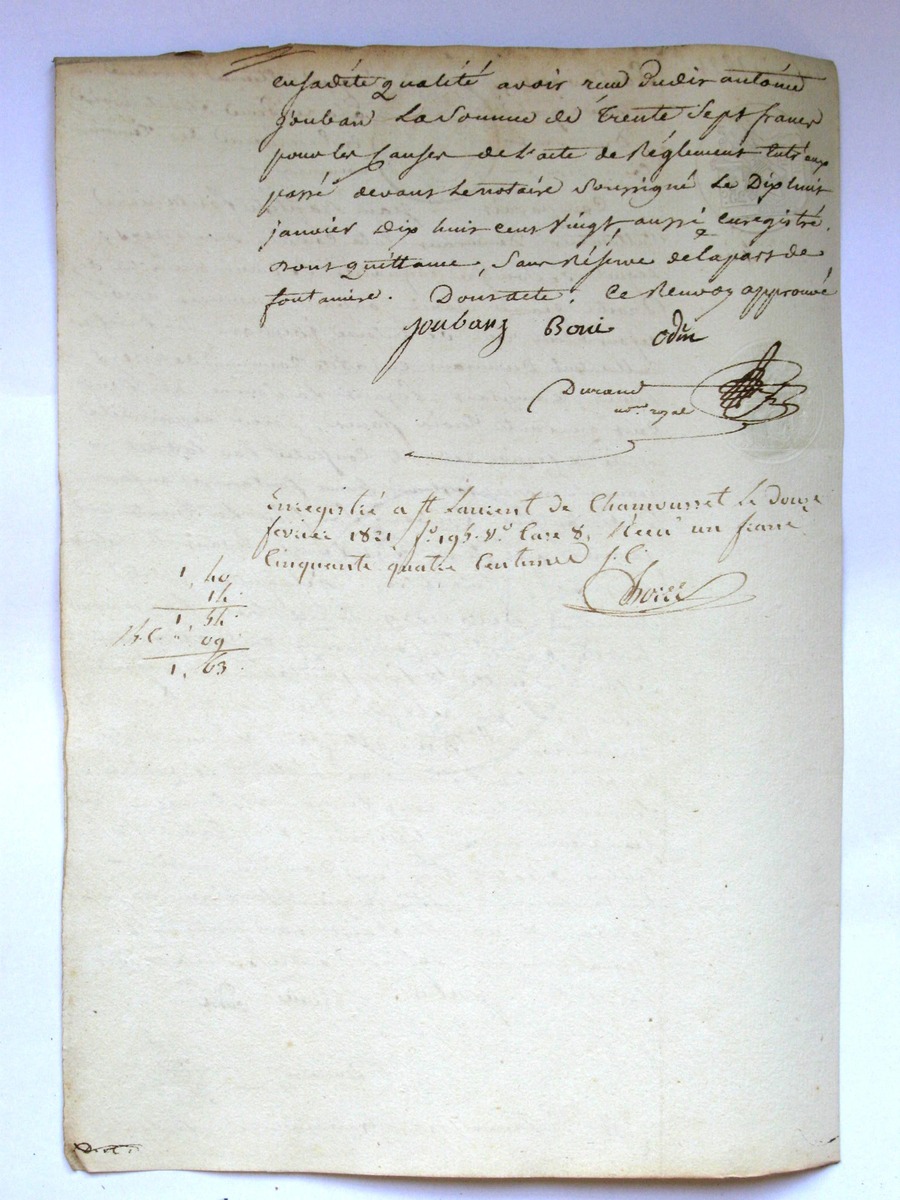 en sadite qualité avoir reçu dudit antoine
Jouban La Somme de Trente Sept francs
pour les Causes de L'acte de Réglement Entr'eux
passé devant Le notaire Soussigné Le Dix huit
janvier Dix huit cent Vingt, aussi enregistré.
Dont quittance, Sans Réserve de la part de
fontaniere. Dont acte. Ce Renvoy approuvé
Joubang Boni odin
Durand
nore royal
Enregistré a St Laurent de Chamousset Le douze
fevrier 1821 fo 195 Vo Case 8, Reçu un franc
Cinquante quatre Centimes S.C.
1, 40
14
1, 54
09
1, 63